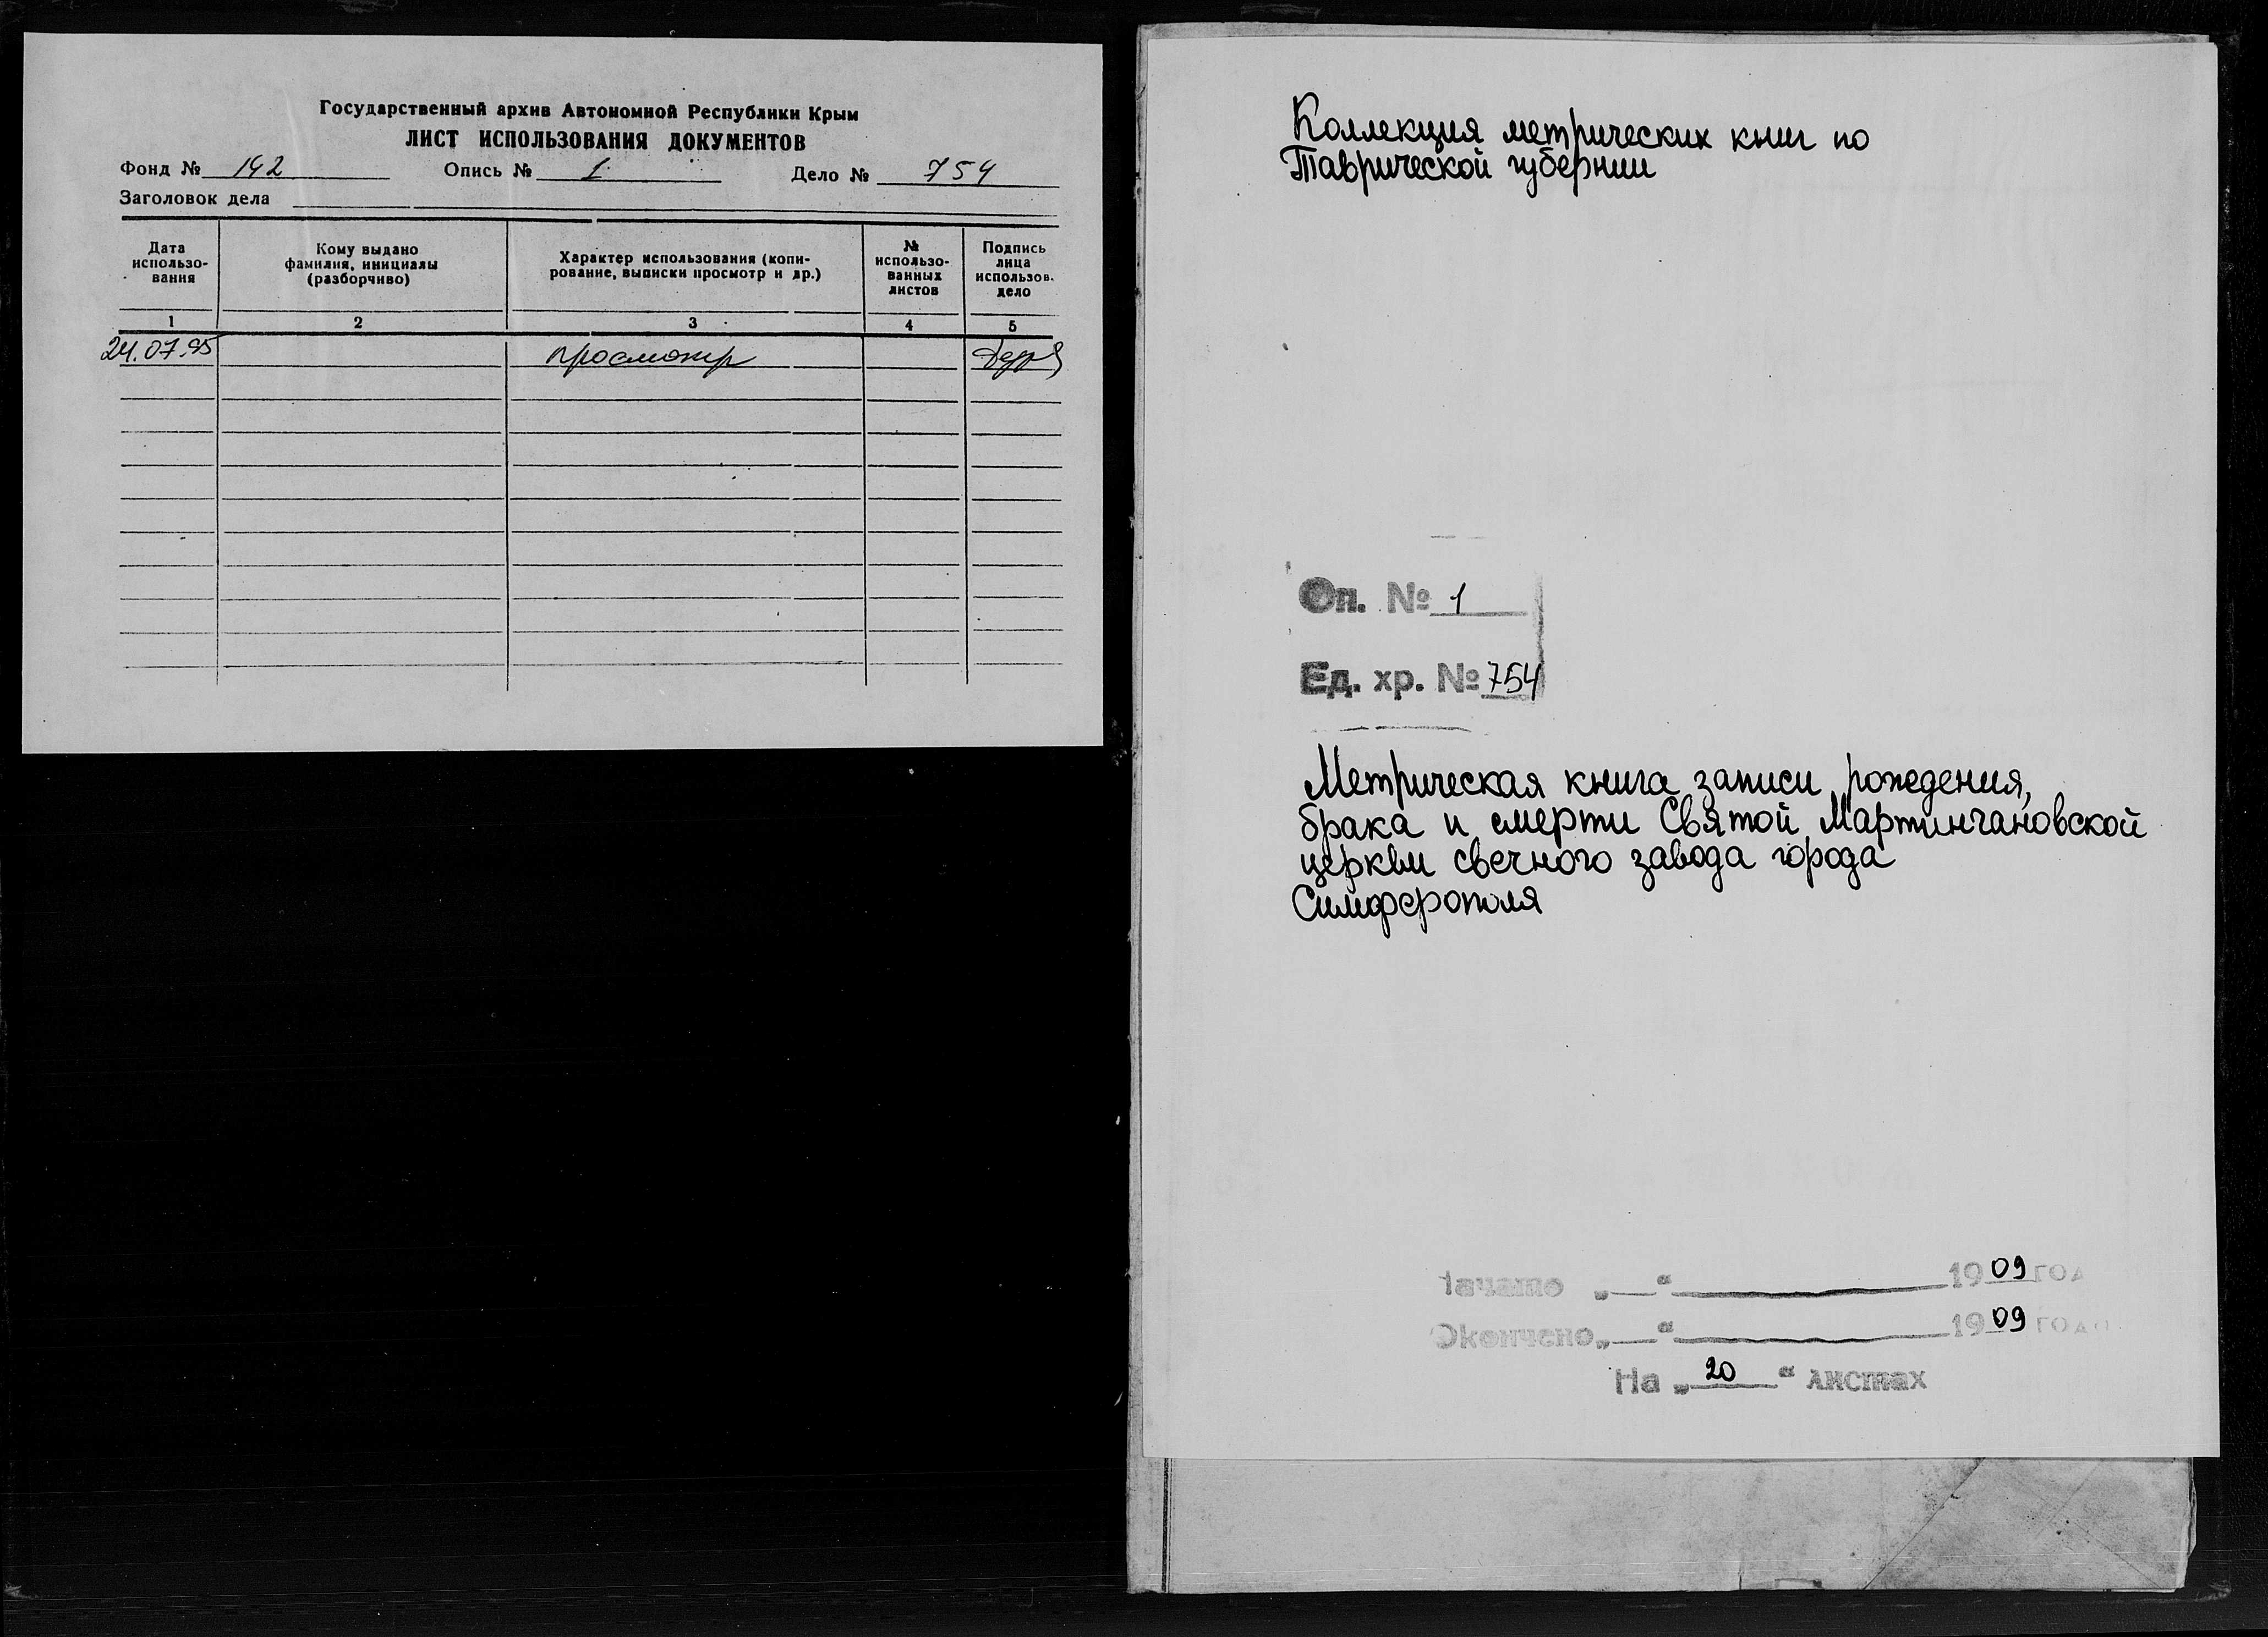 Государственный архив Автономной Республики Крым
ЛИСТ ИСПОЛЬЗОВАНИЯ ДОКУМЕНТОВ
Фонд № 142 Опись № 1 Дело № 754
Заголовок дела
Дата использо-вания
Кому выдано фамилия, инициалы (разборчиво)
Характер использования (копи-рование, выписки просмотр и др.)
№ использо-ванных листов
Подпись лица использов. дело
1 2 3 4 5
24.07.95 просмотр
Коллекция метрических книг по
Таврической губернии
Оп. № 1
Ед. хр. № 754
Метрическая книга записи рождения,
брака и смерти Святой Мартинчановской
церкви свечного завода города
Симферополя
Начато „ “ 1909 года
Окончено „ “ 1909 года
На „20“ листах